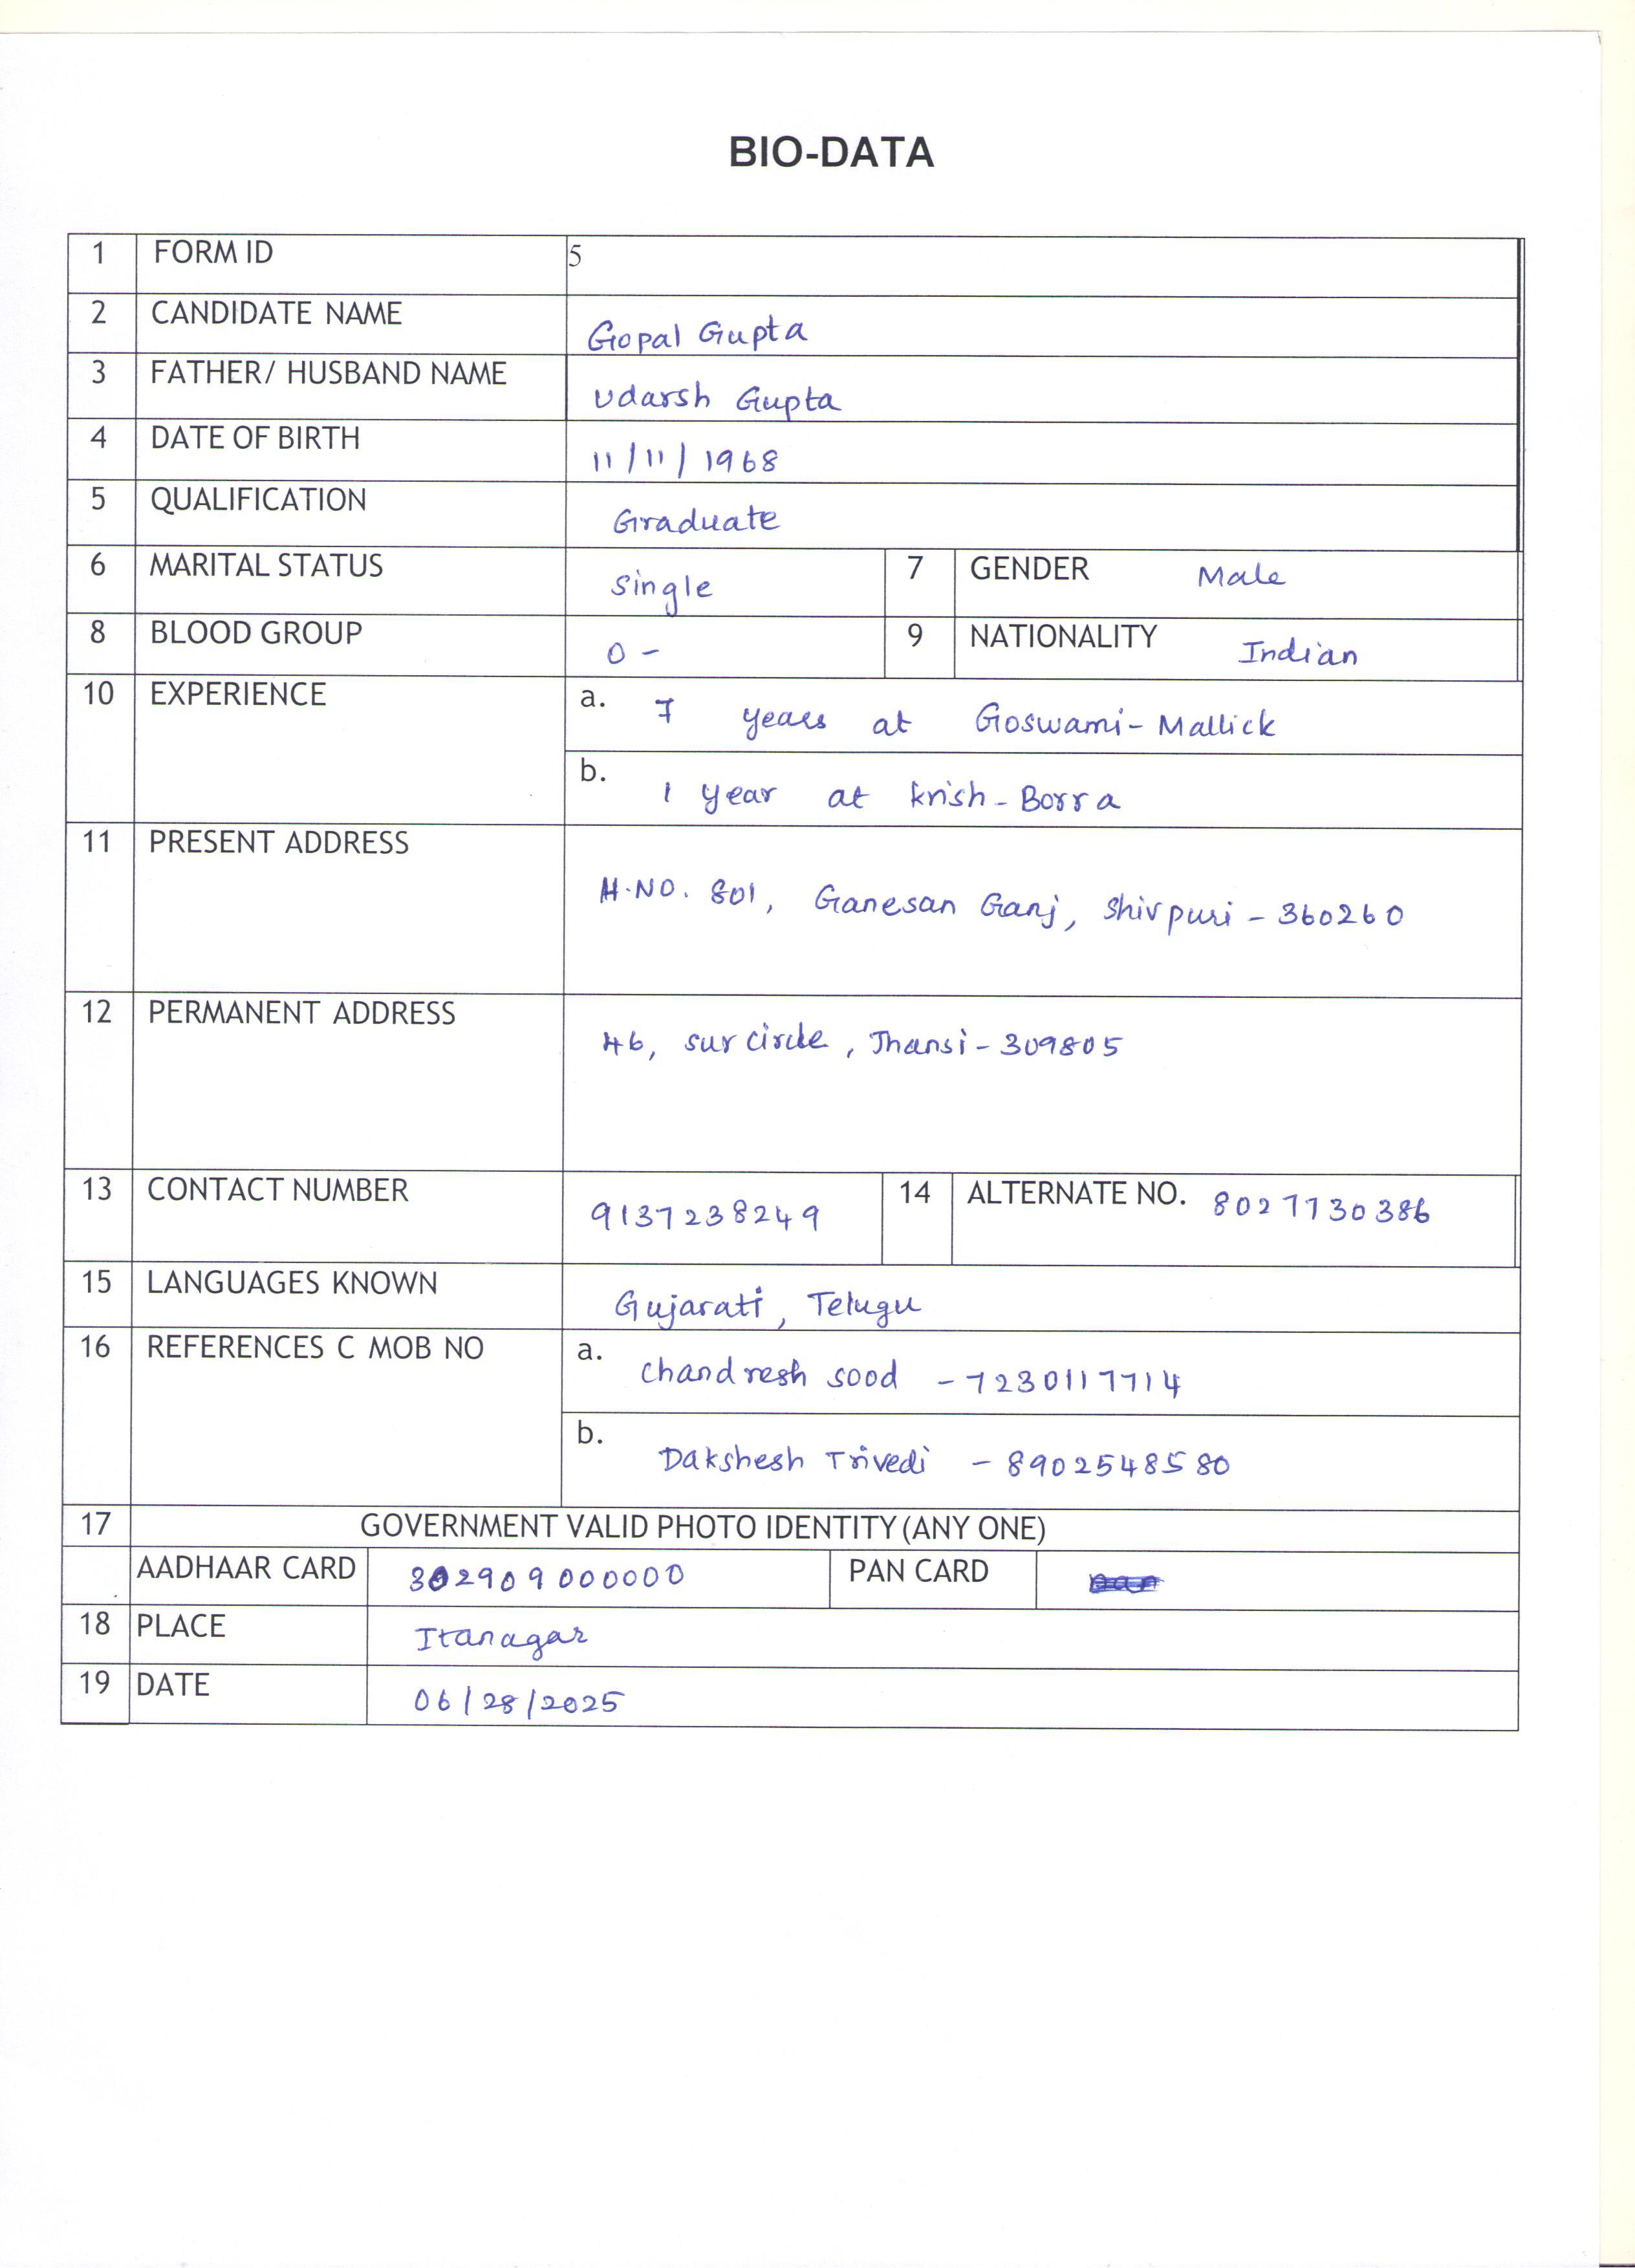 BIO-DATA
1 FORM ID 5
2 CANDIDATE NAME Gopal Gupta
3 FATHER/ HUSBAND NAME Udarsh Gupta
4 DATE OF BIRTH 11/11/1968
5 QUALIFICATION Graduate
6 MARITAL STATUS Single 7 GENDER Male
8 BLOOD GROUP O- 9 NATIONALITY Indian
10 EXPERIENCE a. 7 years at Goswami-Mallick
b. 1 year at Krish-Borra
11 PRESENT ADDRESS
H.NO. 801, Ganesan Ganj, Shivpuri - 360260
12 PERMANENT ADDRESS
46, Sur circle, Jhansi - 309805
13 CONTACT NUMBER 9137238249 14 ALTERNATE NO. 8027730386
15 LANGUAGES KNOWN Gujarati, Telugu
16 REFERENCES C MOB NO a. Chandresh Sood - 7230117714
b. Dakshesh Trivedi - 8902548580
17 GOVERNMENT VALID PHOTO IDENTITY (ANY ONE)
AADHAAR CARD 302909000000 PAN CARD
18 PLACE Itanagar
19 DATE 06/28/2025